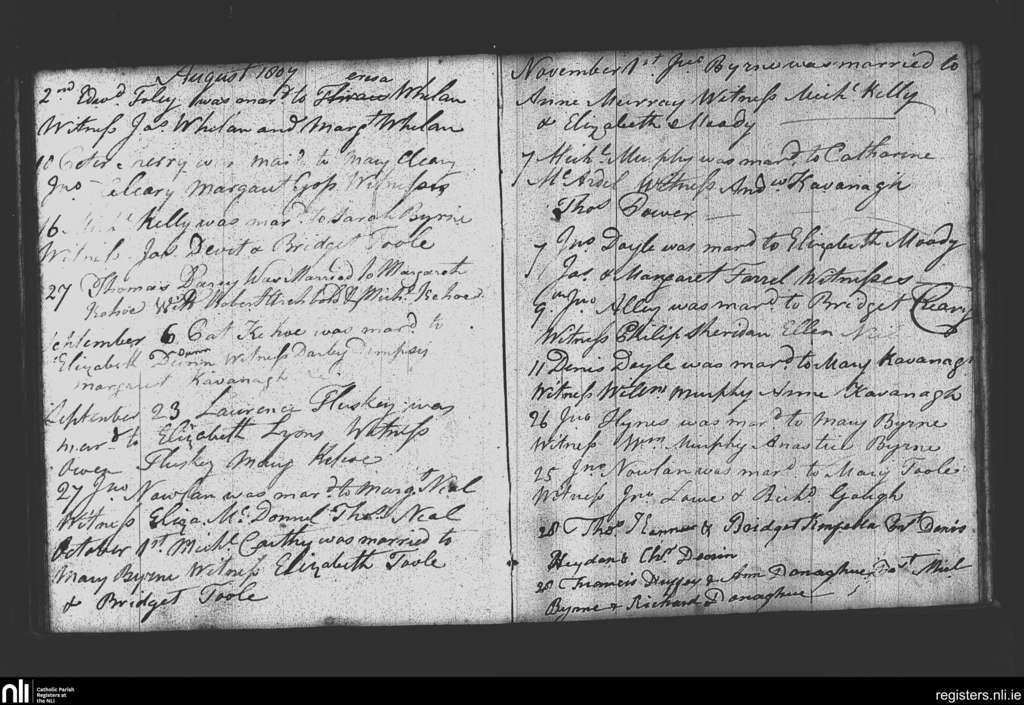 August 1807
2nd Edwd. Foley was mard to Theresa Whelan
Witness Jas. Whelan and Margt Whelan
10 Peter merry was mard. to Mary Cleary
Jno Cleary Margaret Goss Witnesses
16 Kelly was mard. to Sarah Byrne
Witness Jas. Devit & Bridget Toole
27 Thomas Darcy Was Married to Margaret
Kehoe Witt Robert Archbold & Michl. Kehoe
September 6 Pat Kehoe was mard. to
Elizabeth Dunn Witness Darby Dempsey
margaret Kavanagh
September 23 Laurence Fluskey was
mard to Elizabeth Lyons Witness
Owen Fluskey Mary Kehoe
27 Jno. Nowlan was mard. to Margt. Neal
Witness Eliza. McDonnel Thos. Neal
October 1st. Michl. Carthy was married to
Mary Byrne Witness Elizabeth Toole
& Bridget Toole
November 1st. Jno Byrne was married to
Anne Murray Witness Michl Kelly
& Elizabeth Moody
7 Michl. Murphy was mard. to Catharine
McArdel Witness Andw Kavanagh
Thos Power
7 Jno Doyle was mard to Elizabeth Moody
Jas. & Margaret Farrel Witnesses
9 Jno Alley was mard. to Bridget Cleary
Witness Philip Sheridan Ellen
11 Denis Doyle was mard. to Mary Kavanagh
Witness Willm Murphy Anne Kavanagh
26 Jno Hynes was mard to Mary Byrne
Witness Wm. Murphy Anastee Byrne
25 Jno. Nowlan was mard. to Mary Toole
Witness Jno Lowe & Richd Gough
28 Thos. Kenna & Bridget Kinsella Denis
Heydon & Chs.
28 Francis Hussey & Ann Donaghue Michl
Byrne & Richard Donaghue
nli Catholic Parish
Registers at
the NLI
registers.nli.ie